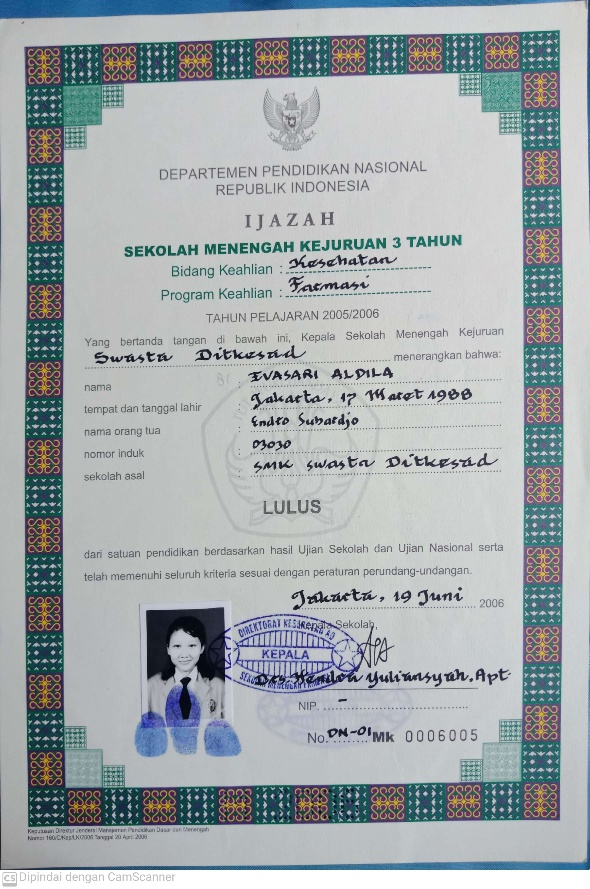 DEPARTEMEN PENDIDIKAN NASIONAL
REPUBLIK INDONESIA
IJAZAH
SEKOLAH MENENGAH KEJURUAN 3 TAHUN
Bidang Keahlian : Kesehatan
Program Keahlian : Farmasi
TAHUN PELAJARAN 2005/2006
Yang bertanda tangan di bawah ini, Kepala Sekolah Menengah Kejuruan
Swasta Ditkesad menerangkan bahwa:
nama : EVASARI ALDILA
tempat dan tanggal lahir : Jakarta, 17 Maret 1988
nama orang tua : Endro Suhardjo
nomor induk : 03030
sekolah asal : SMK Swasta Ditkesad
LULUS
dari satuan pendidikan berdasarkan hasil Ujian Sekolah dan Ujian Nasional serta
telah memenuhi seluruh kriteria sesuai dengan peraturan perundang-undangan.
Jakarta, 19 Juni 2006
Kepala Sekolah,
DIREKTORAT KESEHATAN AD
KEPALA
SEKOLAH MENENGAH
Drs. Hendra Yuliansyah, Apt
NIP. -
No. DN-01 Mk 0006005
Keputusan Direktur Jenderal Manajemen Pendidikan Dasar dan Menengah
Nomor 160/C/Kep/LK/2006 Tanggal 20 April 2006
CS Dipindai dengan CamScanner